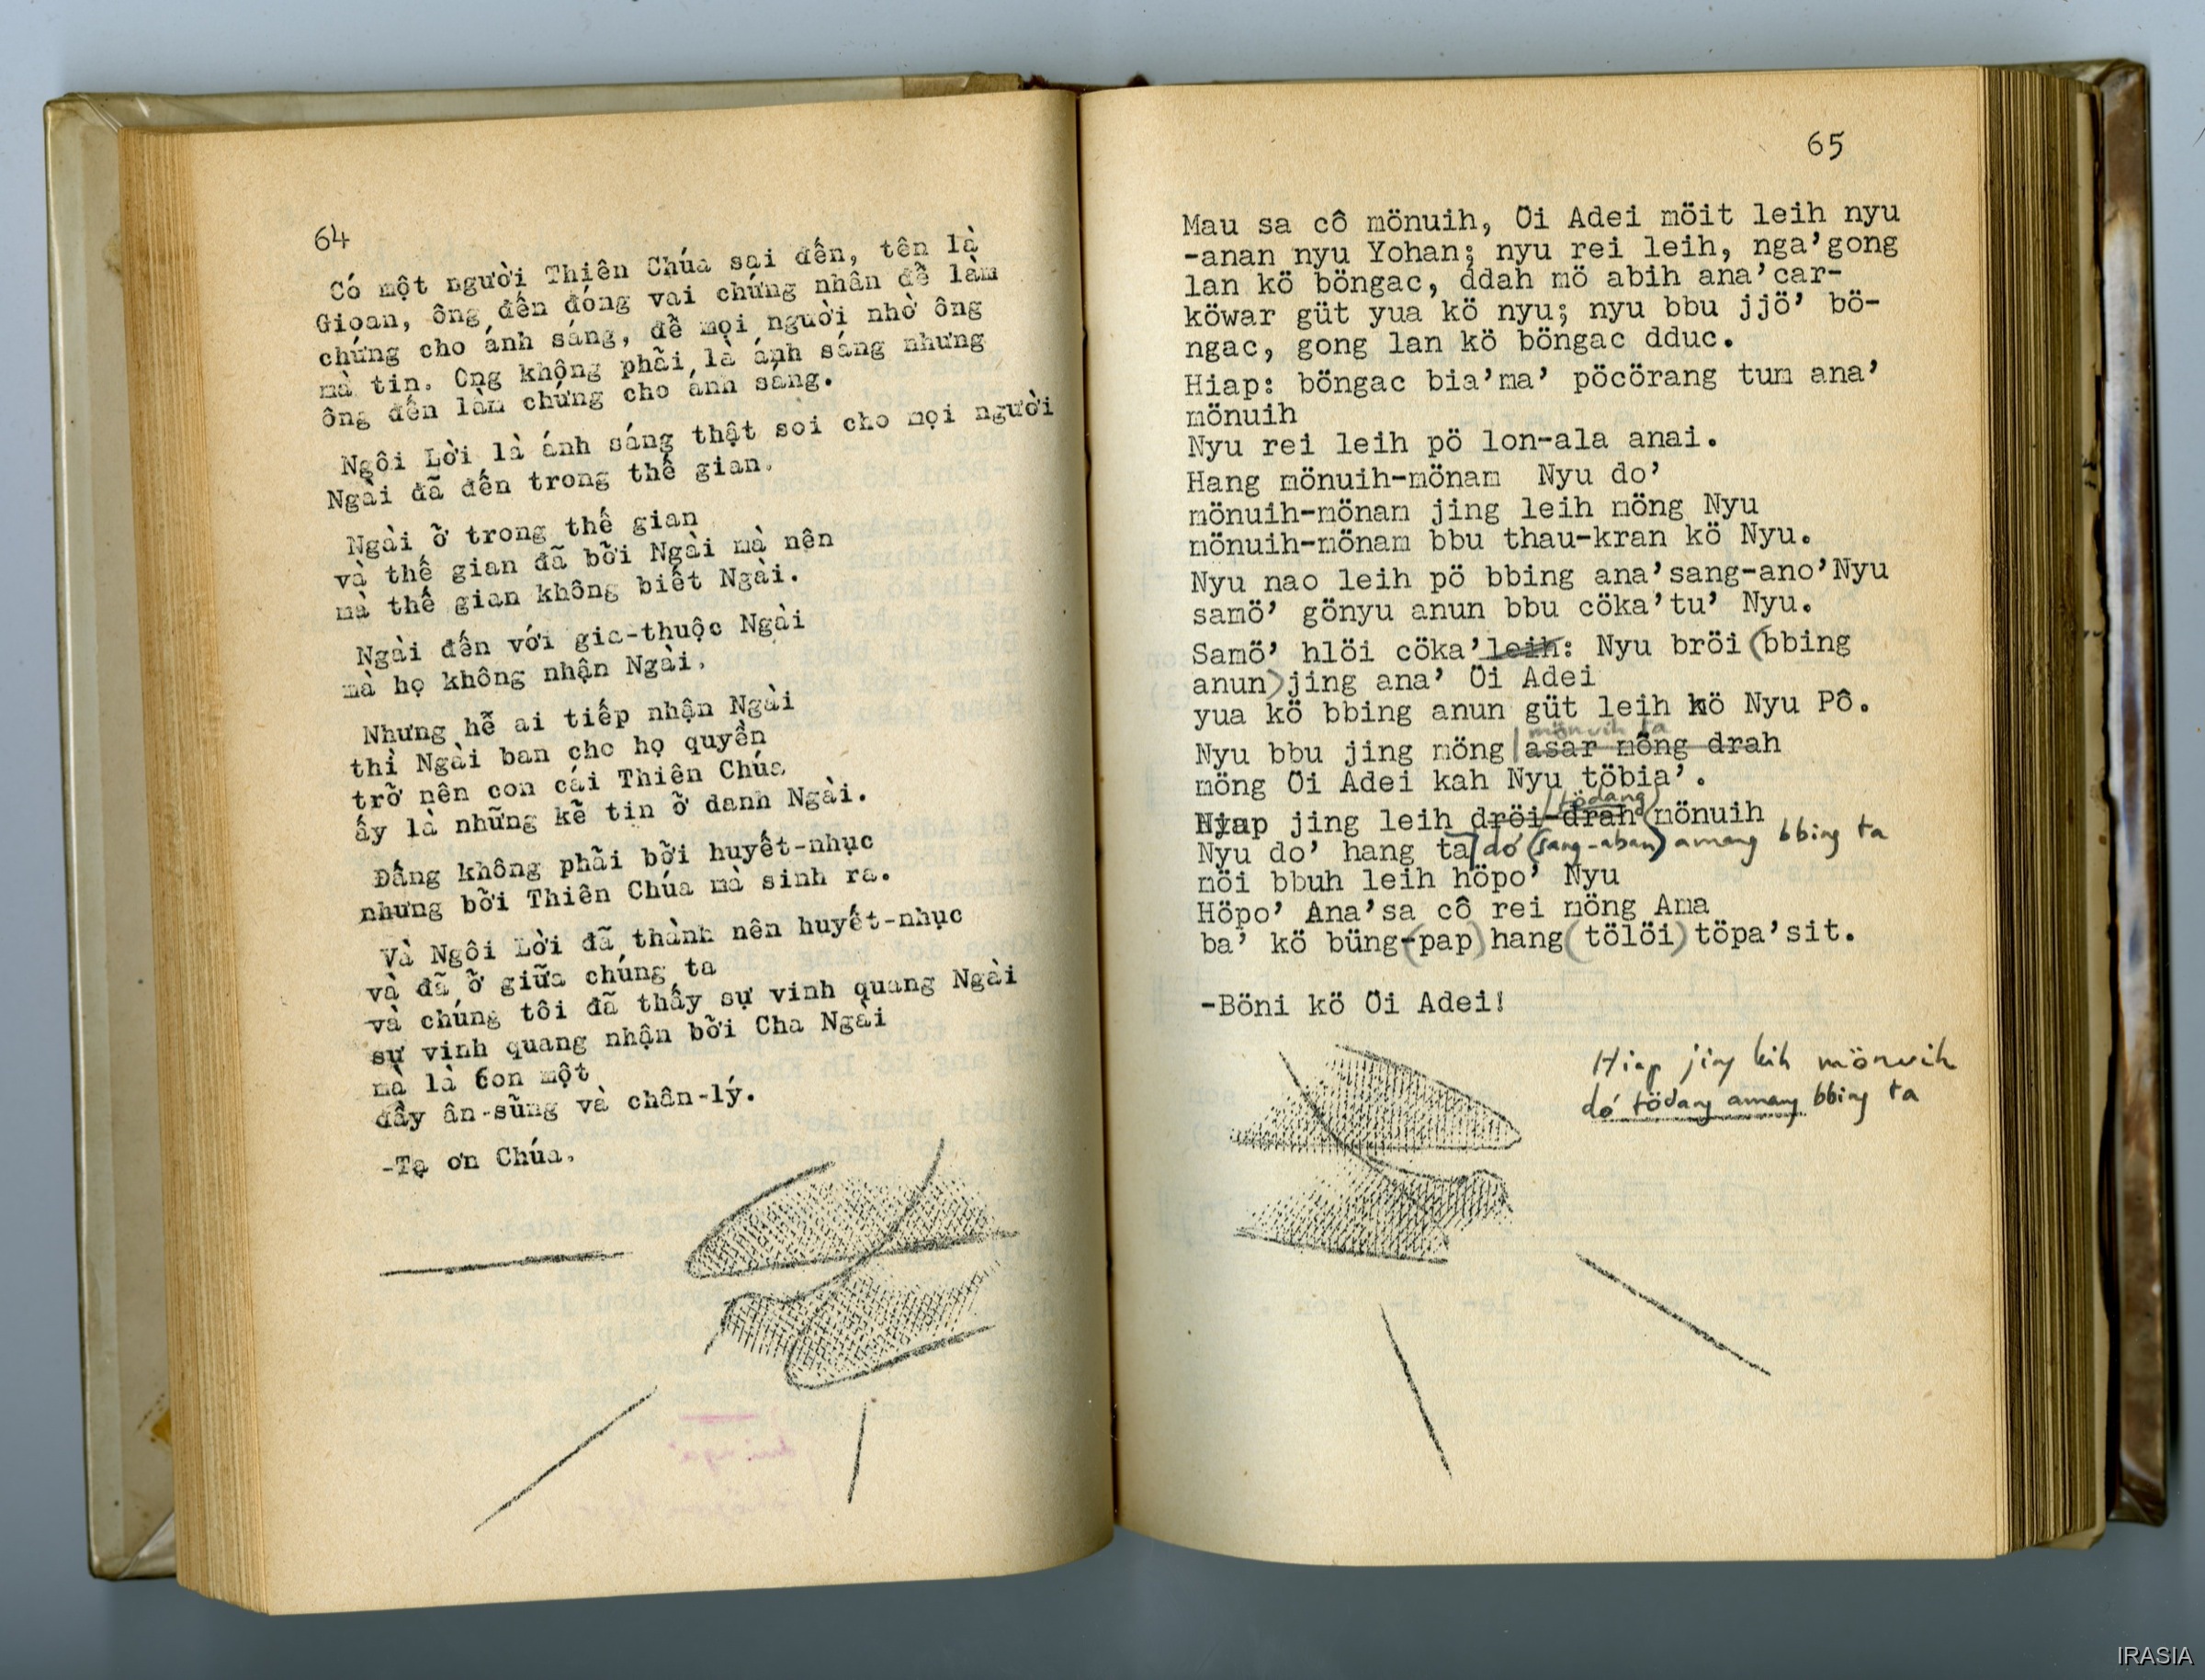 64
Có một người Thiên Chúa sai đến, tên là
Gioan, ông đến đóng vai chứng nhân để làm
chứng cho ánh sáng, để mọi người nhờ ông
mà tin. Ong không phải là ánh sáng nhưng
ông đến làm chứng cho ánh sáng.
Ngôi Lời là ánh sáng thật soi cho mọi người
Ngài đã đến trong thế gian.
Ngài ở trong thế gian
và thế gian đã bởi Ngài mà nên
mà thế gian không biết Ngài.
Ngài đến với gia-thuộc Ngài
mà họ không nhận Ngài.
Nhưng hễ ai tiếp nhận Ngài
thì Ngài ban cho họ quyền
trở nên con cái Thiên Chúa
ấy là những kẽ tin ở danh Ngài.
Đấng không phải bởi huyết-nhục
nhưng bởi Thiên Chúa mà sinh ra.
Và Ngôi Lời đã thành nên huyết-nhục
và đã ở giữa chúng ta
và chúng tôi đã thấy sự vinh quang Ngài
sự vinh quang nhận bởi Cha Ngài
mà là Con một
đầy ân-sũng và chân-lý.
-Tạ ơn Chúa.
65
Mau sa cô mönuih, Öi Adei möit leih nyu
-anan nyu Yohan; nyu rei leih, nga'gong
lan kö böngac, ddah mö abih ana'car-
köwar güt yua kö nyu; nyu bbu jjö' bö-
ngac, gong lan kö böngac dduc.
Hiap: böngac bia'ma' pöcörang tum ana'
mönuih
Nyu rei leih pö lon-ala anai.
Hang mönuih-mönam Nyu do'
mönuih-mönam jing leih möng Nyu
mönuih-mönam bbu thau-kran kö Nyu.
Nyu nao leih pö bbing ana'sang-ano'Nyu
samö' gönyu anun bbu cöka'tu' Nyu.
Samö' hlöi cöka'leih: Nyu bröi (bbing
anun) jing ana' Öi Adei
yua kö bbing anun güt leih kö Nyu Pô.
mönuih ta
Nyu bbu jing möng asar möng drah
möng Öi Adei kah Nyu töbia'.
(tödang)
Hiap jing leih dröi-drah mönuih
Nyu do' hang ta dó (sang-aban) amang bbing ta
möi bbuh leih höpo' Nyu
Höpo' Ana'sa cô rei möng Ama
ba' kö büng-(pap) hang (tölöi) töpa'sit.
-Böni kö Öi Adei!
Hiap jing leih mönuih
dó tödang amang bbing ta
IRASIA